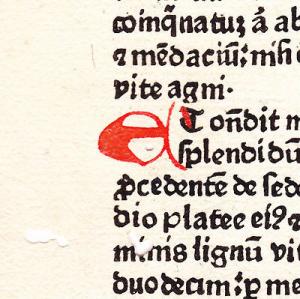 coinq̃natuꝫ ⁊ ab
⁊ mẽdaciũ: nisi
vite agni.
ET oñdit m
splendidũ
ꝓcedentẽ de sed
dio platee eiꝰ ⁊
minis lignũ vit
duodecim: ꝑ me